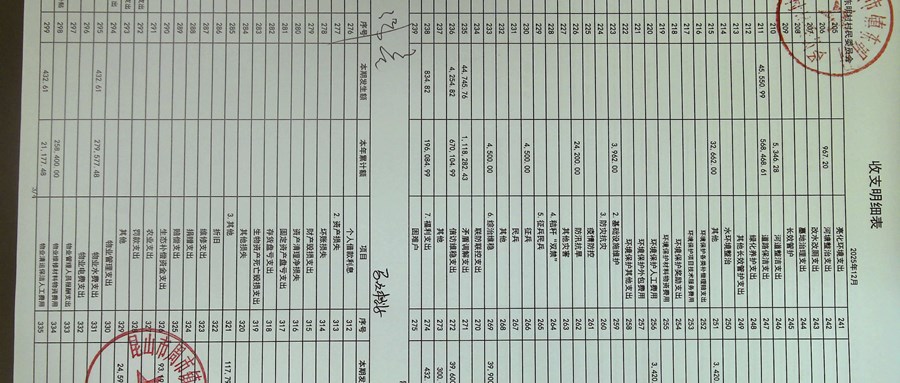 收支明细表
2025年12月
村村民委员会
205 亮化环境支出 241
206 967.20 河塘整治支出 242
207 改水改厕支出 243
208 墓地治理支出 244
209 长效管护 245
210 5,346.28 河道整治支出 246
211 45,550.99 568,468.61 道路保洁支出 247
212 绿化养护支出 248
213 其他长效管护支出 249
214 水环境整治 250
215 32,662.00 其他 251 3,420.
216 环境保护各类补偿理赔支出 252
217 环境保护项目技术服务费用 253
218 环境保护奖励支出 254
219 环境保护材料物资费用 255
220 环境保护人工费用 256 3,420.
221 环境保护外包费用 257
222 环境保护其他支出 258
223 3,962.00 2. 基础设施维护 259
224 3. 防灾抗灾 260
225 疫情防控 261
226 24,200.00 防汛抗旱 262
227 其他灾害 263
228 4. 秸秆“双禁” 264
229 5. 征兵民兵 265
230 4,500.00 征兵 266
231 民兵 267
232 其他 268
233 4,500.00 6. 综治维稳 269 39,900
234 联防群控支出 270
235 44,745.76 1,118,282.43 矛盾调解支出 271
236 4,254.82 670,104.99 信访维稳支出 272 39,600
237 其他 273 300.
238 834.82 196,084.99 7. 福利支出 274 432.
239 困难户 275
序号 本期发生额 本年累计额 项目 序号 本期发
276 个人借款利息 312
277 2. 资产损失 313
278 坏账损失 314
279 财产毁损支出 315
280 资产清理净损失 316
281 固定资产盘亏支出 317
282 存货盘亏支出 318
283 生物资产死亡毁损支出 319
284 其他损失 320
285 3. 其他 321 117,79
折旧 322
维修支出 323
捐赠支出 324
赔偿支出 325
生态补偿资金支出 326
农业支出 327
罚款支出 328
其他 329 24,59
物业管理支出 330
295 432.61 279,577.48 物业水费支出 331
296 物业电费支出 332
297 物业管理人员报酬支出 333
298 258,400.00 物业维修材料物资费用 334
299 432.61 21,177.48 物业清运保洁人工费用 335
3/4
昆山市周市镇